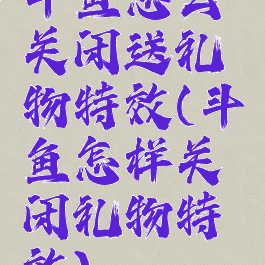 斗鱼怎么
关闭送礼
物特效(斗
鱼怎样关
闭礼物特
效)